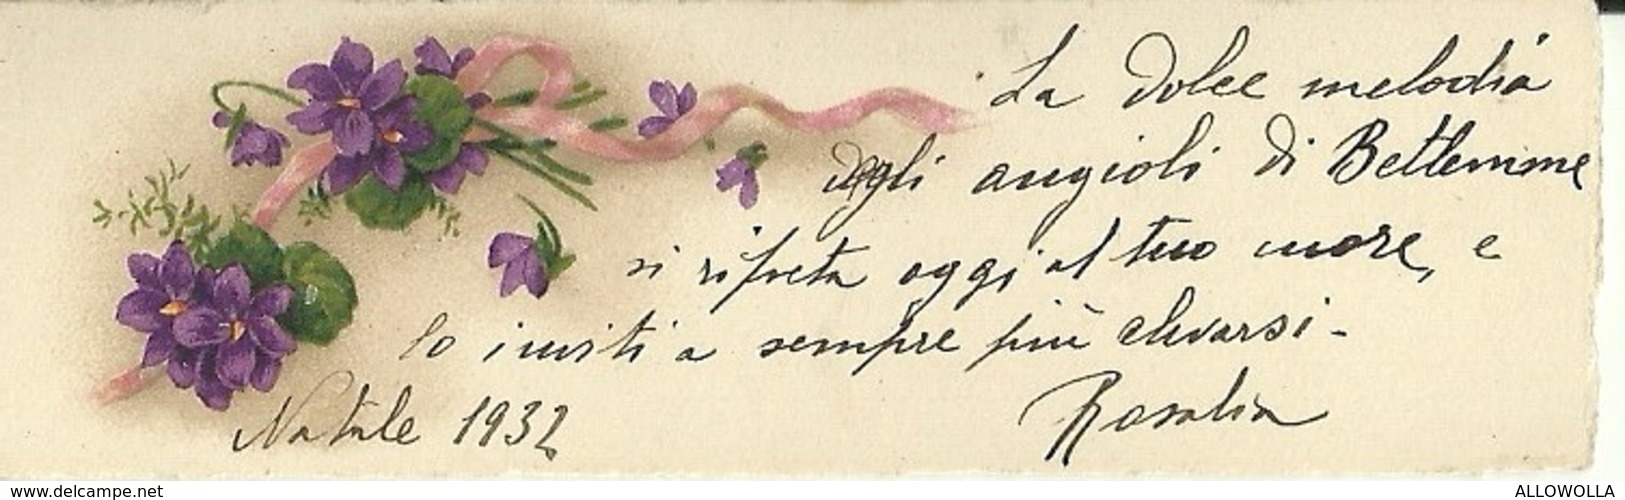 La dolce melodia
degli angioli di Betlemme
si ripeta oggi al tuo cuore, e
lo inviti a sempre più elevarsi-
Natale 1932
Rosalia
www.delcampe.net
ALLOWOLLA